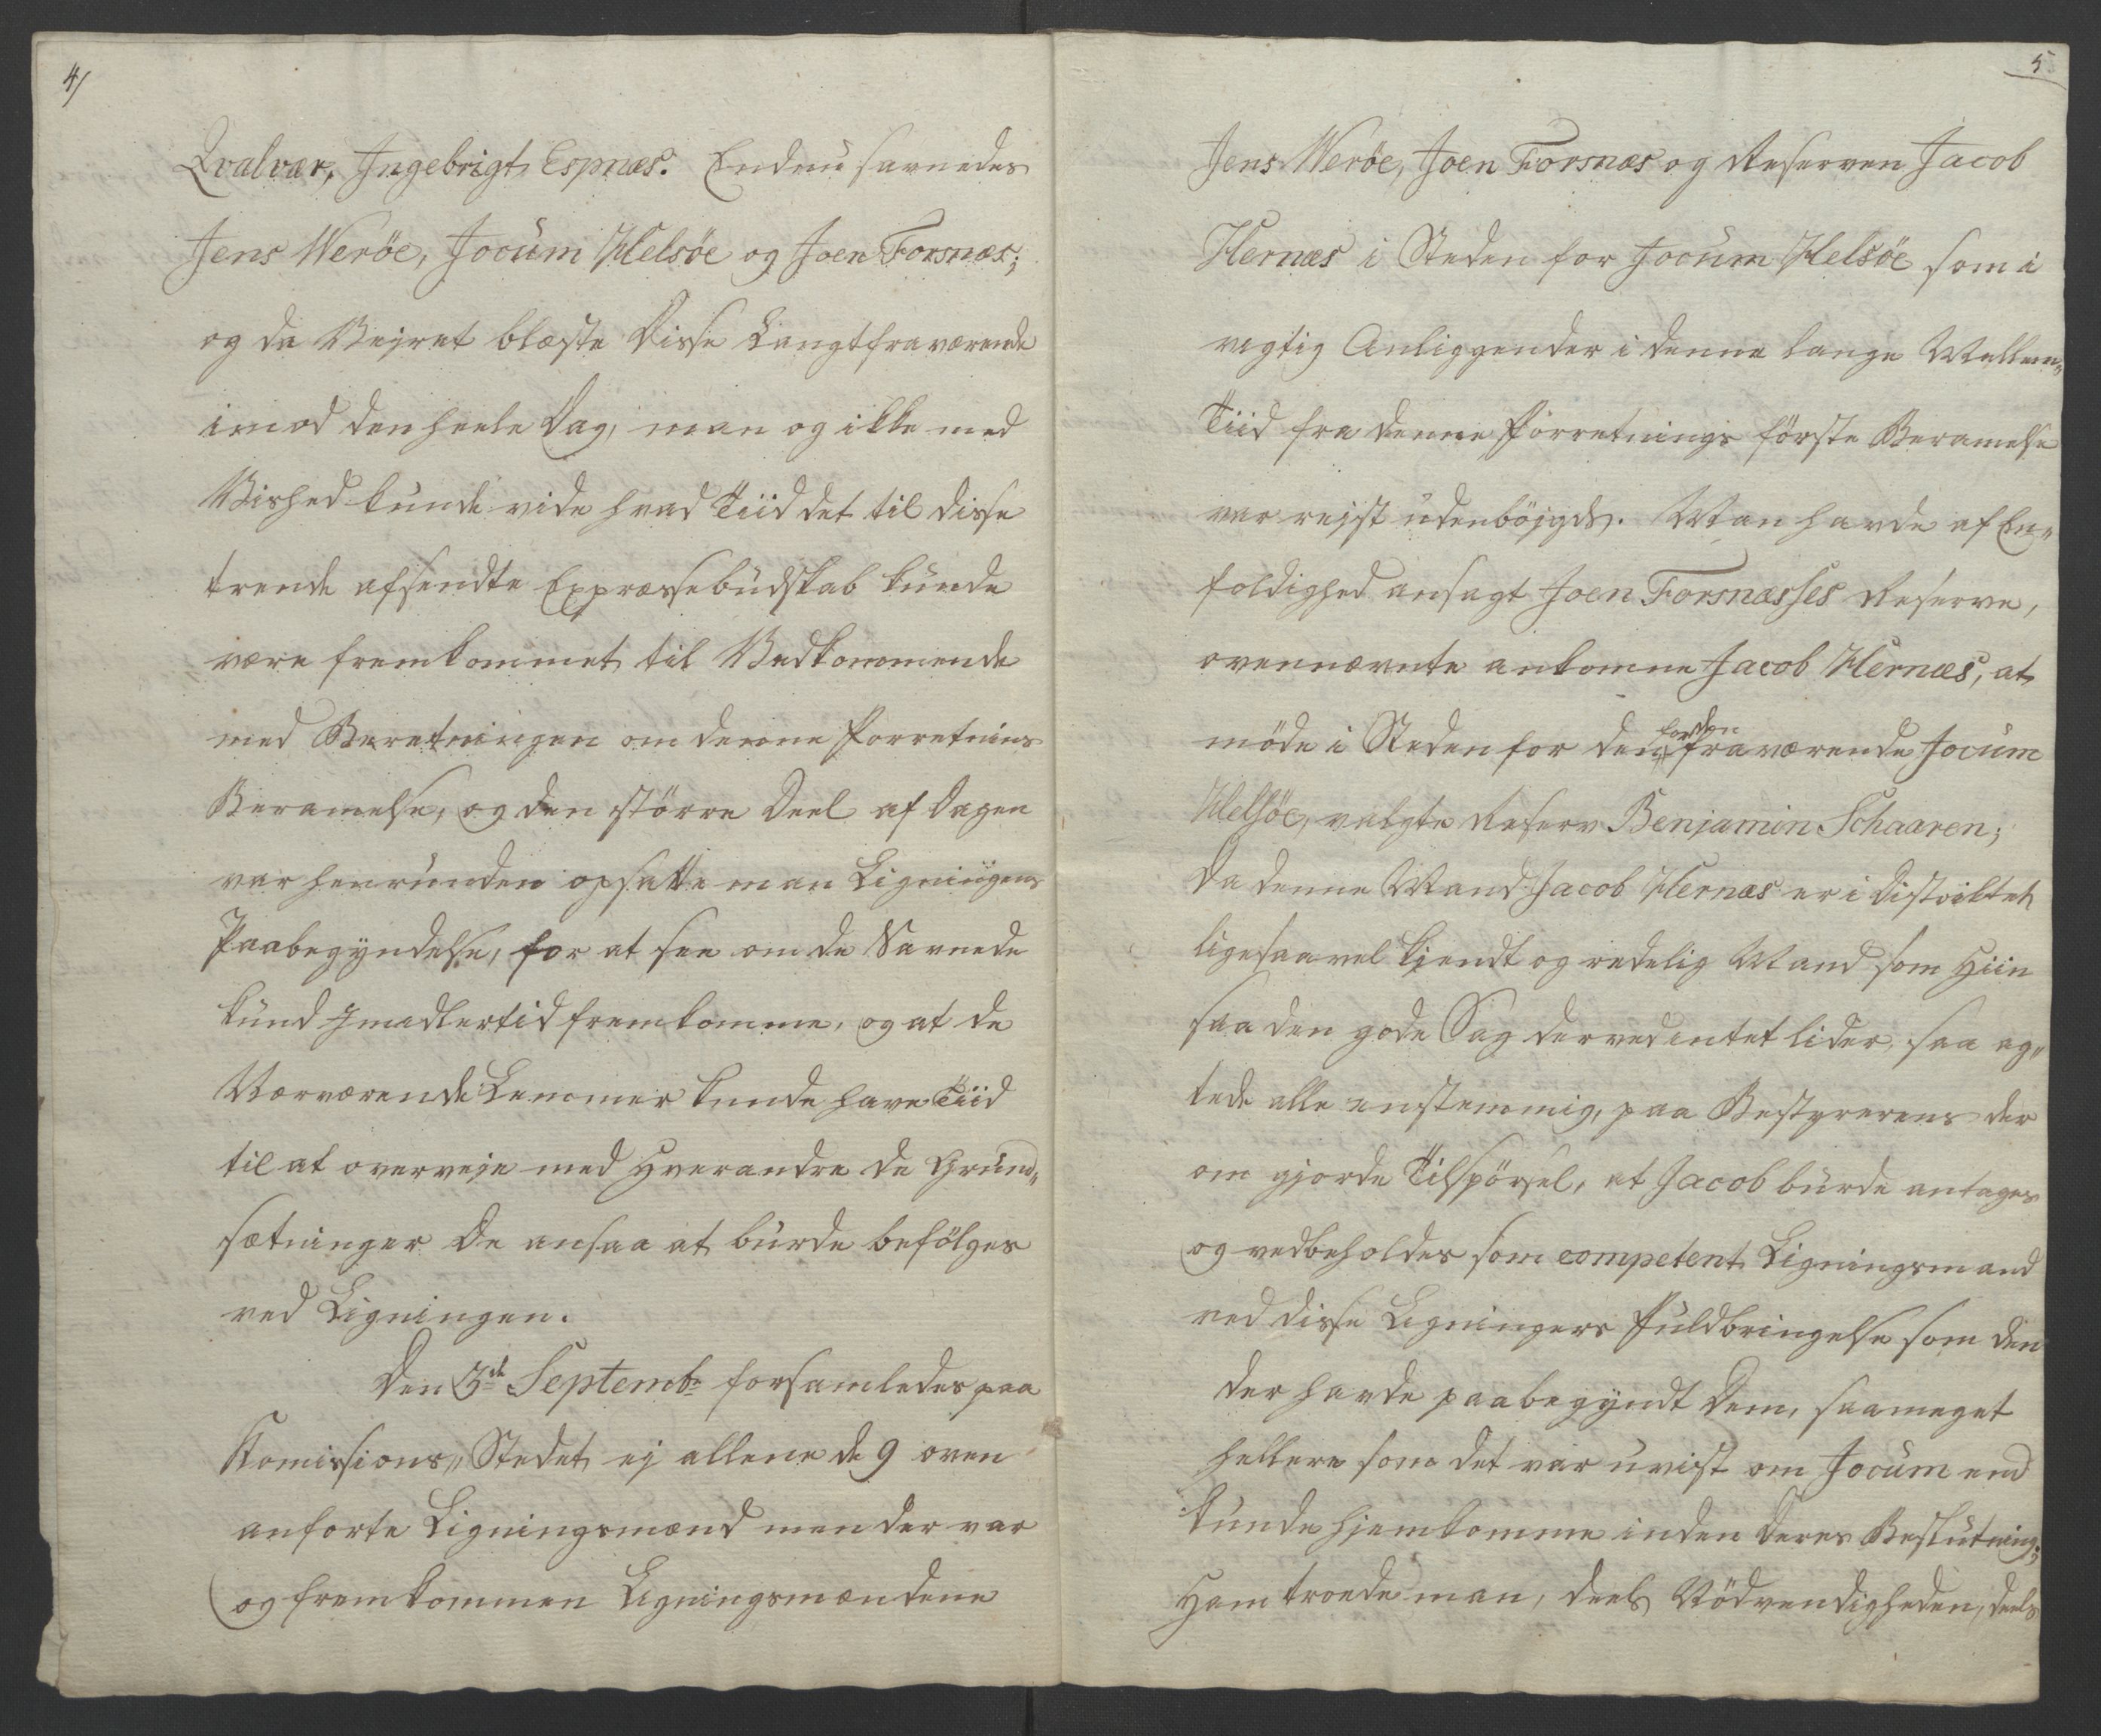 4/
Qvalvær, Ingebrigt Espnæs. Endnu savnedes
Jens Werøe, Jocum Helsøe og Joen Forsnæs;
og da Vejret blæste Disse Langtfraværende
imod den heele Dag, man og ikke med
Vished kunde vide hvad Tiid det til disse
trende afsendte Expræssebudskab kunde
være fremkommet til Vedkommende
med Beretningen om denne Forretnins
Beramelse, og den större Deel af Dagen
var henrunden opsatte man Ligningens
Paabegyndelse, for at see om de Savnede
kund Imedlertid fremkomme, og at de
Nærværende Lemmer kunde have Tiid
til at overveje med Hverandre de Grund„
sætninger De ansaa at burde befölges
ved Ligningen.
Den 3de Septembr forsamledes paa
Komissions„Stedet ej allene de 9 oven
anforte Ligningsmænd men der var
og fremkommen Ligningsmændene
5
Jens Werøe, Joen Forsnæs og Reserven Jacob
Hernæs i Steden for Jocum Helsöe som i
vigtig Anliggender i denne lange Mellem„
Tiid fra denne Forretnings förste Beramelse
var rejst udenböjgds. Man havde af En„
foldighed ansagt Joen Forsnæsses Reserve,
ovennævnte ankomne Jacob Hernæs, at
möde i Steden for den fraværende Jocum
Helsöe, valgte Reserv Benjamin Schaaren;
Da denne Mand Jacob Hernæs er i Distriktet
ligesaavel kjendt og redelig Mand som Hiin
saa den gode Sag derved intet lider, saa ag„
tede alle enstemmig, paa Bestyrerens der
om gjorde Tilspörsel, at Jacob burde antages
og vedbeholdes som competent Ligningsmand
ved disse Ligningers Fuldbringelse som den
der havde paabegyndt Dem, saameget
hellere som det var uvist om Jocum end
kunde hjemkomme inden deres Beslutning;
Ham troede man, deels Nödvendigheden, deels